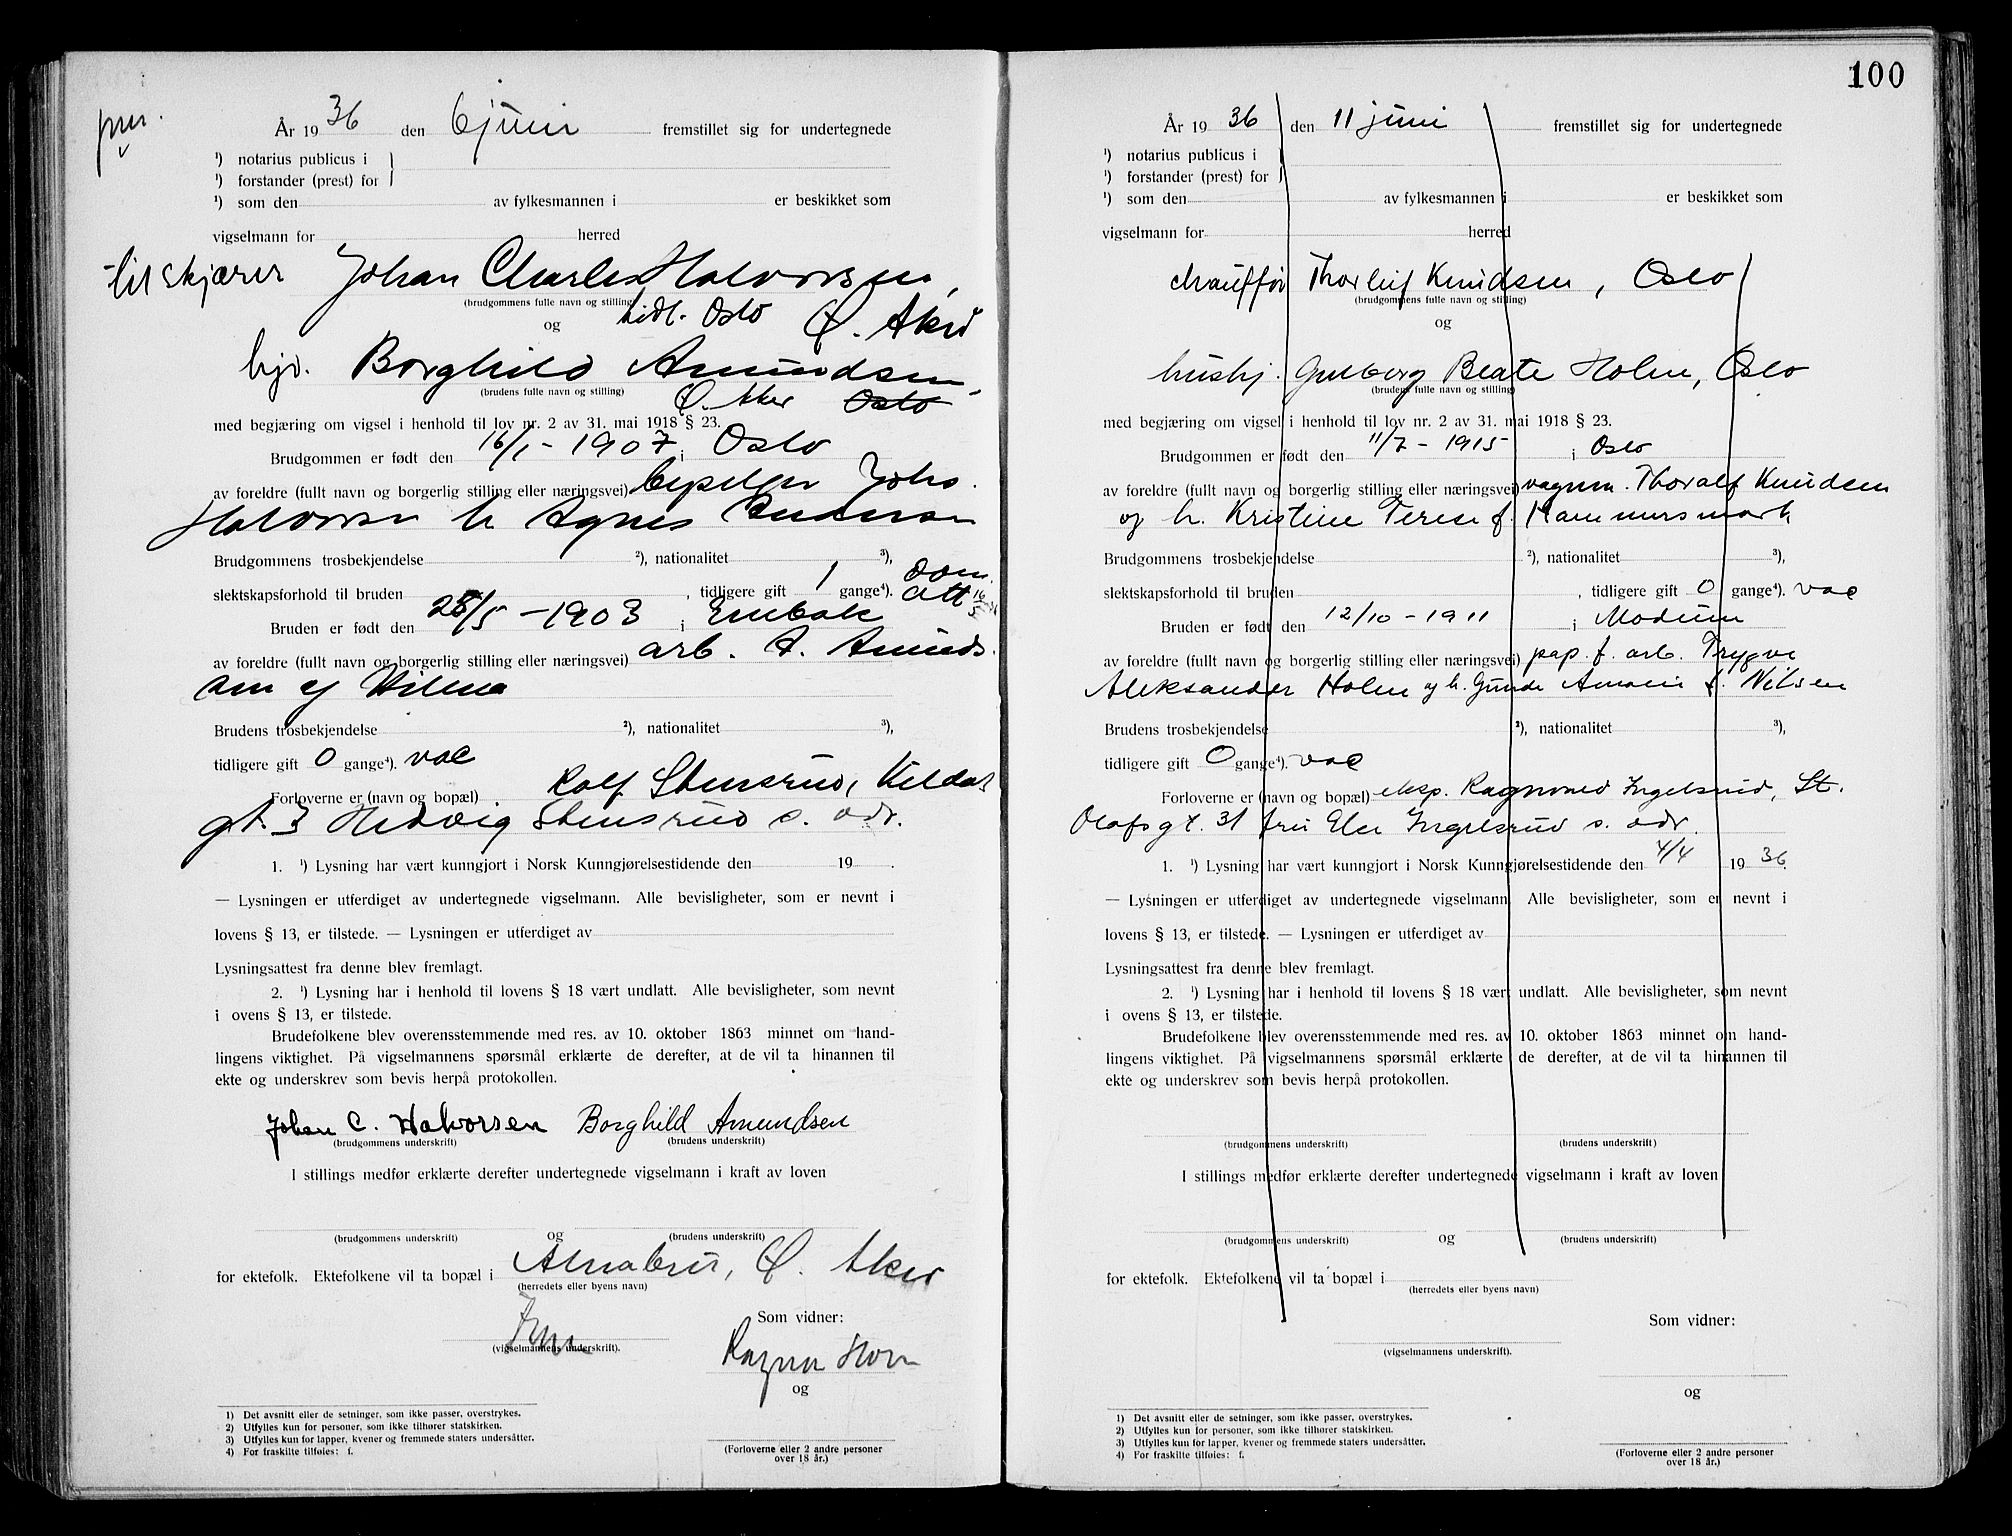 prv.
År 1936 den 6 juni fremstillet sig for undertegnede
¹) notarius publicus i
¹) forstander (prest) for
¹) som den av fylkesmannen i er beskikket som
vigselmann for herred
tilskjærer Johan Charles Halvorsen,
(brudgommens fulle navn og stilling)
og tidl. Oslo Ø. Aker
hjv. Borghild Amundsen,
(brudens fulle navn og stilling)
Ø. Aker Oslo
med begjæring om vigsel i henhold til lov nr. 2 av 31. mai 1918 § 23.
Brudgommen er født den 16/1 - 1907 i Oslo
av foreldre (fullt navn og borgerlig stilling eller næringsvei) Johs.
Halvorsen h Agnes Andersen
Brudgommens trosbekjendelse ²), nationalitet ³),
slektskapsforhold til bruden , tidligere gift 1 gange⁴). dom att
Bruden er født den 28/5 - 1903 i Enebak
av foreldre (fullt navn og borgerlig stilling eller næringsvei) arb. A. Amunds
sen og Hilma
Brudens trosbekjendelse ²), nationalitet ³),
tidligere gift 0 gange⁴). vac
Forloverne er (navn og bopæl) Rolf Stensrud, Kildal
gt. 3 Hedvig Stensrud s. adr.
1. ¹) Lysning har vært kunngjort i Norsk Kunngjørelsestidende den 19 .
— Lysningen er utferdiget av undertegnede vigselmann. Alle bevisligheter, som er nevnt i
lovens § 13, er tilstede. — Lysningen er utferdiget av
Lysningsattest fra denne blev fremlagt.
2. ¹) Lysning har i henhold til lovens § 18 vært undlatt. Alle bevisligheter, som nevnt
i ovens § 13, er tilstede.
Brudefolkene blev overensstemmende med res. av 10. oktober 1863 minnet om hand-
lingens viktighet. På vigselmannens spørsmål erklærte de derefter, at de vil ta hinannen til
ekte og underskrev som bevis herpå protokollen.
Johan C. Halvorsen Borghild Amundsen
(brudgommens underskrift) (brudens underskrift)
I stillings medfør erklærte derefter undertegnede vigselmann i kraft av loven
og
(brudgommens underskrift) (brudens underskrift)
for ektefolk. Ektefolkene vil ta bopæl i Alnabru, Ø. Aker
(herredets eller byens navn)
Som vidner:
(vigselmannens underskrift).
Ragna Horn
og
1) Det avsnitt eller de setninger, som ikke passer, overstrykes.
2) Utfylles kun for personer, som ikke tilhører statskirken.
3) Utfylles kun for lapper, kvener og fremmede staters undersåtter.
4) For fraskilte tilføies: f.
(Forloverne eller 2 andre personer
over 18 år.)
100
År 1936 den 11 juni fremstillet sig for undertegnede
¹) notarius publicus i
¹) forstander (prest) for
¹) som den av fylkesmannen i er beskikket som
vigselmann for herred
chauffør Thorleif Knudsen, Oslo
(brudgommens fulle navn og stilling)
og
hushj. Gulborg Beate Holm, Oslo
(brudens fulle navn og stilling)
med begjæring om vigsel i henhold til lov nr. 2 av 31. mai 1918 § 23.
Brudgommen er født den 11/7 - 1915 i Oslo
av foreldre (fullt navn og borgerlig stilling eller næringsvei) vognm. Thoralf Knudsen
og h. Kristine Terese f. Hammersmark
Brudgommens trosbekjendelse ²), nationalitet ³),
slektskapsforhold til bruden , tidligere gift 0 gange⁴). vac
Bruden er født den 12/10 - 1911 i Modum
av foreldre (fullt navn og borgerlig stilling eller næringsvei) pap. f. arb. Trygve
Aleksander Holm og h. Gunda Amalie f. Nilsen
Brudens trosbekjendelse ²), nationalitet ³),
tidligere gift 0 gange⁴). vac
Forloverne er (navn og bopæl) eksp. Ragnvald Ingelsrud, St.
Olafsgt. 31 fru Else Ingelsrud s. adr.
1. ¹) Lysning har vært kunngjort i Norsk Kunngjørelsestidende den 4/4 1936.
— Lysningen er utferdiget av undertegnede vigselmann. Alle bevisligheter, som er nevnt i
lovens § 13, er tilstede. — Lysningen er utferdiget av
Lysningsattest fra denne blev fremlagt.
2. ¹) Lysning har i henhold til lovens § 18 vært undlatt. Alle bevisligheter, som nevnt
i ovens § 13, er tilstede.
Brudefolkene blev overensstemmende med res. av 10. oktober 1863 minnet om hand-
lingens viktighet. På vigselmannens spørsmål erklærte de derefter, at de vil ta hinannen til
ekte og underskrev som bevis herpå protokollen.
(brudgommens underskrift) (brudens underskrift)
I stillings medfør erklærte derefter undertegnede vigselmann i kraft av loven
og
(brudgommens underskrift) (brudens underskrift)
for ektefolk. Ektefolkene vil ta bopæl i
(herredets eller byens navn)
Som vidner:
(vigselmannens underskrift).
og
1) Det avsnitt eller de setninger, som ikke passer, overstrykes.
2) Utfylles kun for personer, som ikke tilhører statskirken.
3) Utfylles kun for lapper, kvener og fremmede staters undersåtter.
4) For fraskilte tilføies: f.
(Forloverne eller 2 andre personer
over 18 år.)